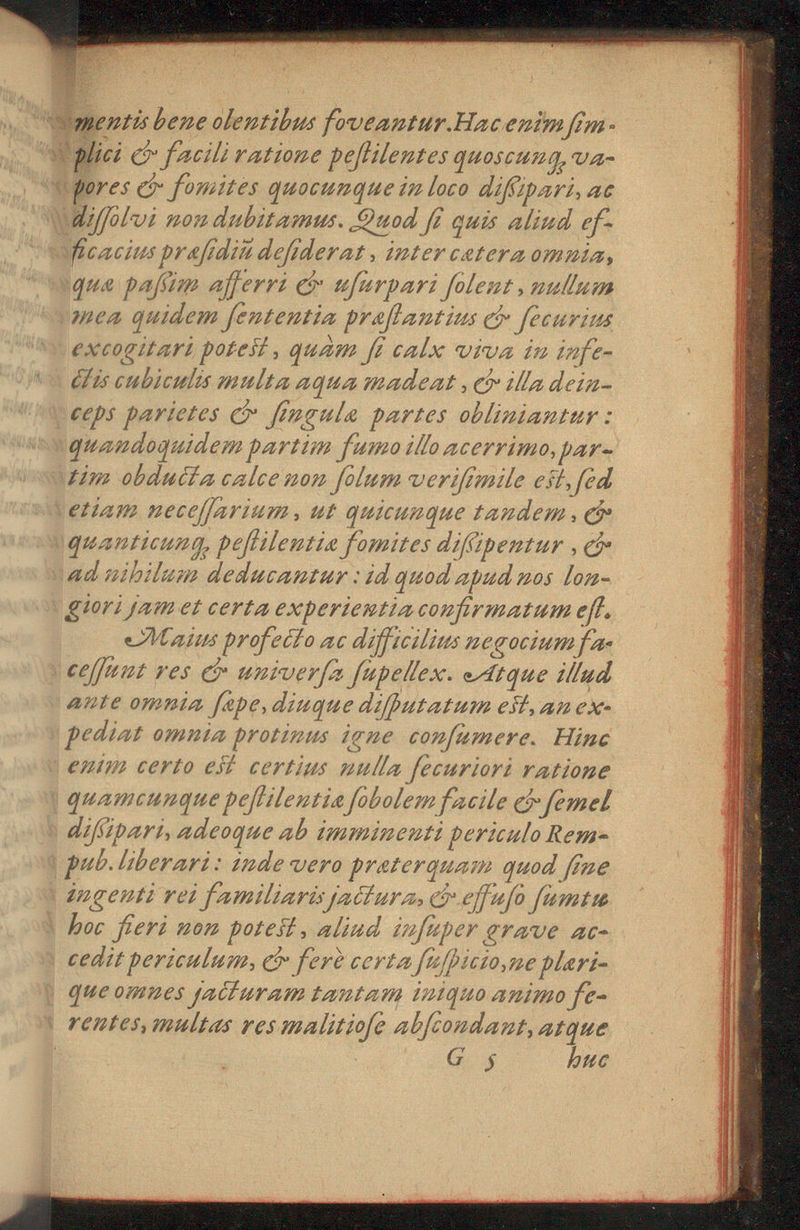 mentis bene olentibus foveantur. Hac enim ſim-
plici & facili ratione peſtilentes quoscunq, va-
pores & fomites quocunque in loco diſſipari, ac
diſſolvi non dubitamus. Quod ſi quis aliud ef-
ficacius præſidiũ deſiderat, inter cætera omnia,
quæ paſſim afferri & uſurpari ſolent, nullum
mea quidem ſententia præſtantius & ſecurius
excogitari poteſt, quàm ſi calx viva in infe-
ctis cubiculis multa aqua madeat, & illa dein-
ceps parietes & ſingulæ partes obliniantur:
quandoquidem partim fumo illo acerrimo, par-
tim obducta calce non ſolum veriſimile eſt, ſed
etiam neceſſarium, ut quicunque tandem, &
quanticunq, peſtilentiæ fomites diſſipentur, &
ad nihilum deducantur: id quod apud nos lon-
giori jam et certa experientia confirmatum eſt.
Maius profecto ac difficilius negocium fa-
ceſſunt res & univerſa ſupellex. Atque illud
ante omnia ſæpe, diuque diſputatum eſt, an ex-
pediat omnia protinus igne conſumere. Hinc
enim certo eſt certius nulla ſecuriori ratione
quamcunque peſtilentiæ ſobolem facile & ſemel
diſſipari, adeoque ab imminenti periculo Rem-
pub. liberari: inde vero præterquam quod ſine
ingenti rei familiaris jactura, & effuſo ſumtu
hoc fieri non poteſt, aliud inſuper grave ac-
cedit periculum, & ferè certa ſuſpicio, ne pleri-
que omnes jacturam tantam iniquo animo fe-
rentes, multas res malitioſe abſcondant, atque
G 5 huc